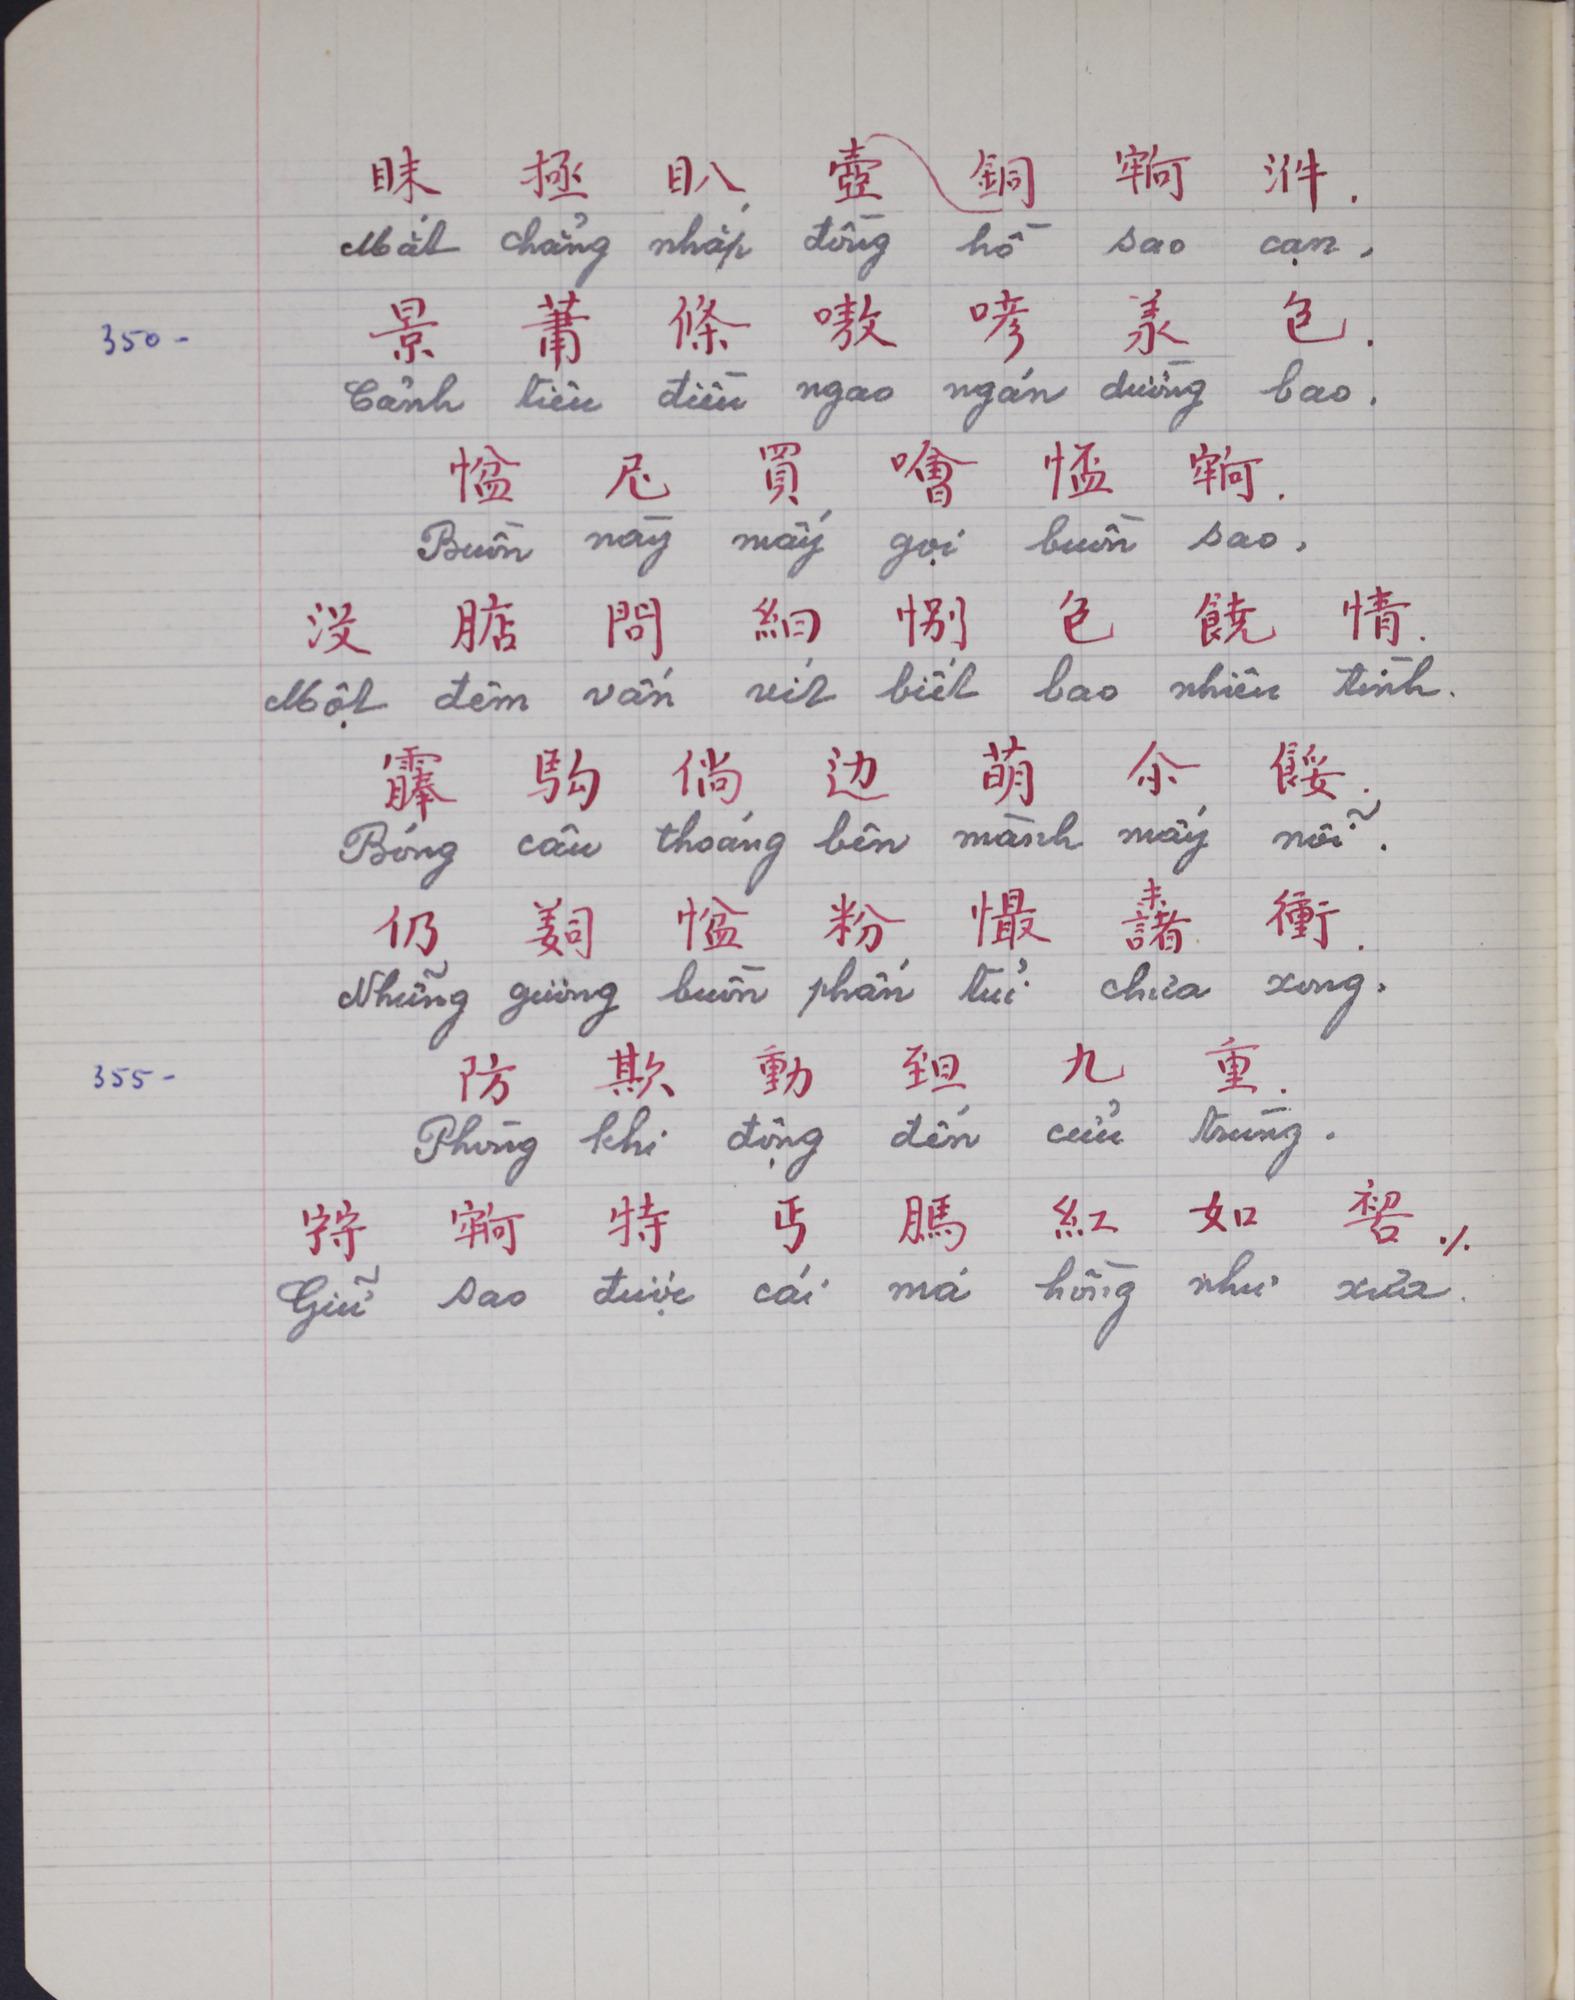 眜 極 䀡 壺 銅 𡨺 汫.
Mắt chẳng nháp đồng hồ sao cạn,
350- 景 蕭 條 嗷 喭 羕 包.
Cảnh tiêu điều ngao ngán dường bao.
㥳 尼 買 噲 㥳 𡨺.
Buồn này mấy gọi buồn sao,
没 𣎀 問 䋛 別 包 饒 情.
Một đêm vấn vít biết bao nhiêu tình.
䏾 駒 倘 边 萌 尒 餒.
Bóng câu thoáng bên mành mấy nỗi.
仍 㥳 粉 㦈 渚 衝.
Những gương buồn phấn tủi chưa xong.
355- 防 欺 動 𦤾 九 重.
Phòng khi động đến cửu trùng.
𡨹 𡨺 特 丐 䐁 紅 如 𠸗 ./.
Giữ sao được cái má hồng như xưa.